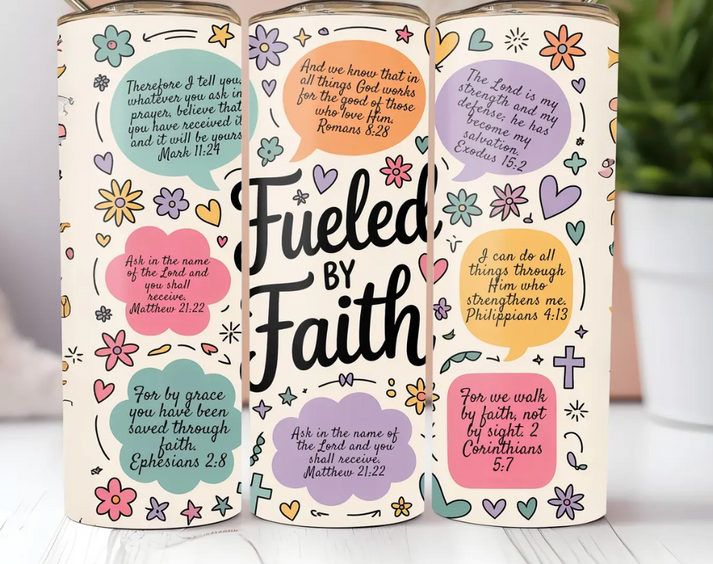 Therefore I tell you,
whatever you ask in
prayer, believe that
you have received it
and it will be yours
Mark 11:24
Ask in the name
of the Lord and
you shall
receive.
Matthew 21:22
For by grace
you have been
saved through
faith.
Ephesians 2:8
And we know that in
all things God works
for the good of those
who love Him.
Romans 8:28
Fueled
BY
Faith
Ask in the name of
the Lord and you
shall receive.
Matthew 21:22
The Lord is my
strength and my
defense; he has
become my
salvation.
Exodus 15:2
I can do all
things through
Him who
strengthens me.
Philippians 4:13
For we walk
by faith, not
by sight. 2
Corinthians
5:7